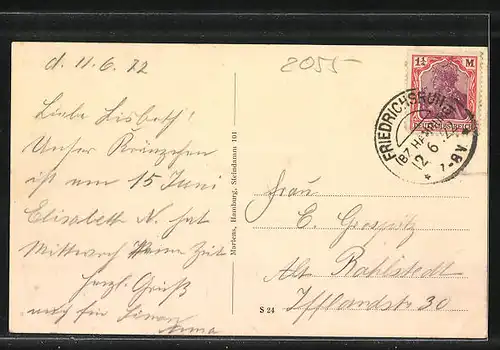 d. 11.6.22
2055
Liebe Lisbeth!
Unser Kränzchen
ist am 15 Juni
Elisabeth N. hat
Mittwoch keine Zeit
herzl. Gruß
auch für
Anna
Martens, Hamburg, Steindamm 101
S 24
1¼ M
DEUTSCHES REICH
FRIEDRICHSRUH
12.6
7-8V
Frau
E.
Alt Rahlstedt
Ifflandstr 30